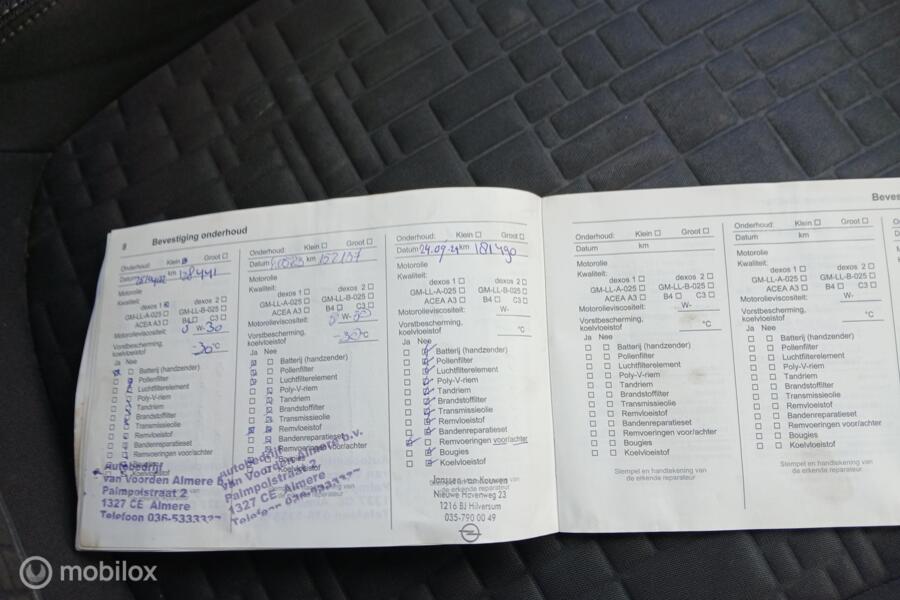 8 Bevestiging onderhoud
Onderhoud: Klein ☐ Groot ☐
Datum km 128441
Motorolie
Kwaliteit:
dexos 1 ☒ dexos 2 ☐
GM-LL-A-025 ☐ GM-LL-B-025 ☐
ACEA A3 ☐ B4 ☐ C3 ☐
Motorolieviscositeit: 5 W- 30
Vorstbescherming,
koelvloeistof -30 °C
Ja Nee
Batterij (handzender)
Pollenfilter
Luchtfilterelement
Poly-V-riem
Tandriem
Brandstoffilter
Transmissieolie
Remvloeistof
Bandenreparatieset
Remvoeringen voor/achter
Koelvloeistof
Autobedrijf
van Voorden Almere b.v.
Palmpolstraat 2
1327 CE Almere
Telefoon 036-5333
Onderhoud: Klein ☐ Groot ☐
Datum km 152157
Motorolie
Kwaliteit:
dexos 1 ☐ dexos 2 ☐
GM-LL-A-025 ☐ GM-LL-B-025 ☐
ACEA A3 ☐ B4 ☐ C3 ☐
Motorolieviscositeit: 5 W- 30
Vorstbescherming,
koelvloeistof -30 °C
Ja Nee
Batterij (handzender)
Pollenfilter
Luchtfilterelement
Poly-V-riem
Tandriem
Brandstoffilter
Transmissieolie
Remvloeistof
Bandenreparatieset
Remvoeringen voor/achter
Bougies
Koelvloeistof
Autobedrijf
van Voorden Almere b.v.
Palmpolstraat 2
1327 CE Almere
Telefoon 036-5333
Onderhoud: Klein ☐ Groot ☐
Datum 24.09.24 km 181490
Motorolie
Kwaliteit:
dexos 1 ☐ dexos 2 ☐
GM-LL-A-025 ☐ GM-LL-B-025 ☐
ACEA A3 ☐ B4 ☐ C3 ☐
Motorolieviscositeit: W-
Vorstbescherming,
koelvloeistof °C
Ja Nee
Batterij (handzender)
Pollenfilter
Luchtfilterelement
Poly-V-riem
Tandriem
Brandstoffilter
Transmissieolie
Remvloeistof
Bandenreparatieset
Remvoeringen voor/achter
Bougies
Koelvloeistof
Janssen van Kouwen
Nieuwe Havenweg 23
1216 BJ Hilversum
035-790 00 49
Onderhoud: Klein ☐ Groot ☐
Datum km
Motorolie
Kwaliteit:
dexos 1 ☐ dexos 2 ☐
GM-LL-A-025 ☐ GM-LL-B-025 ☐
ACEA A3 ☐ B4 ☐ C3 ☐
Motorolieviscositeit: W-
Vorstbescherming,
koelvloeistof °C
Ja Nee
Batterij (handzender)
Pollenfilter
Luchtfilterelement
Poly-V-riem
Tandriem
Brandstoffilter
Transmissieolie
Remvloeistof
Bandenreparatieset
Remvoeringen voor/achter
Bougies
Koelvloeistof
Stempel en handtekening van
de erkende reparateur
Beves
Onderhoud: Klein ☐ Groot ☐
Datum km
Motorolie
Kwaliteit:
dexos 1 ☐ dexos 2 ☐
GM-LL-A-025 ☐ GM-LL-B-025 ☐
ACEA A3 ☐ B4 ☐ C3 ☐
Motorolieviscositeit: W-
Vorstbescherming,
koelvloeistof °C
Ja Nee
Batterij (handzender)
Pollenfilter
Luchtfilterelement
Poly-V-riem
Tandriem
Brandstoffilter
Transmissieolie
Remvloeistof
Bandenreparatieset
Remvoeringen voor/achter
Bougies
Koelvloeistof
Stempel en handtekening van
de erkende reparateur
mobilox